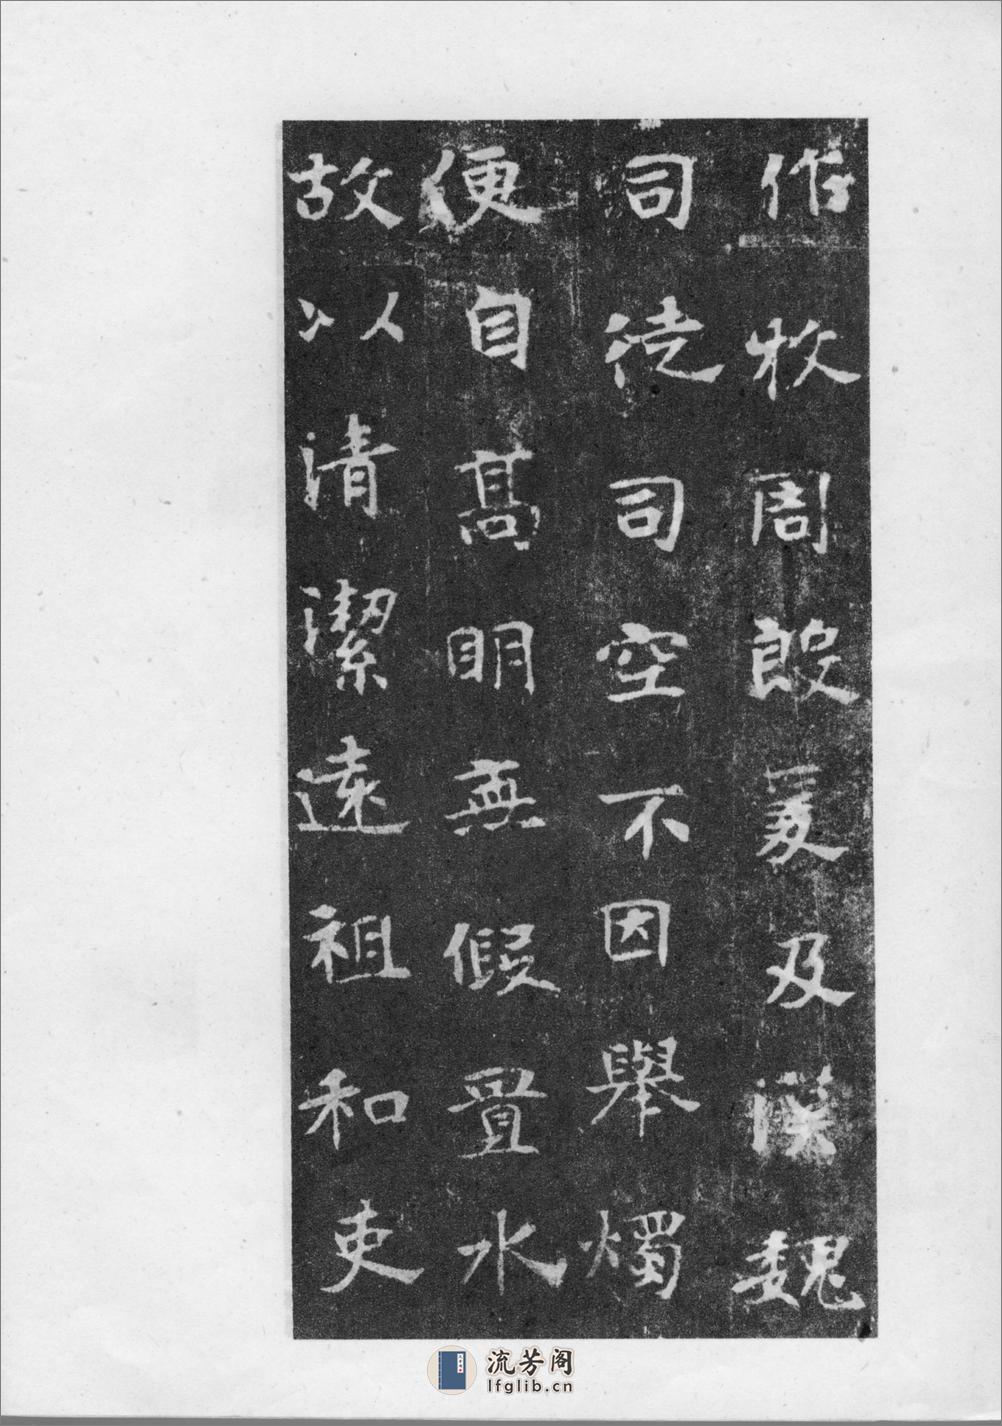 作牧周殷爰及漢魏
司徒司空不因舉燭
便自高明無假置水
故以清潔遠祖和吏
流芳阁
lfglib.cn